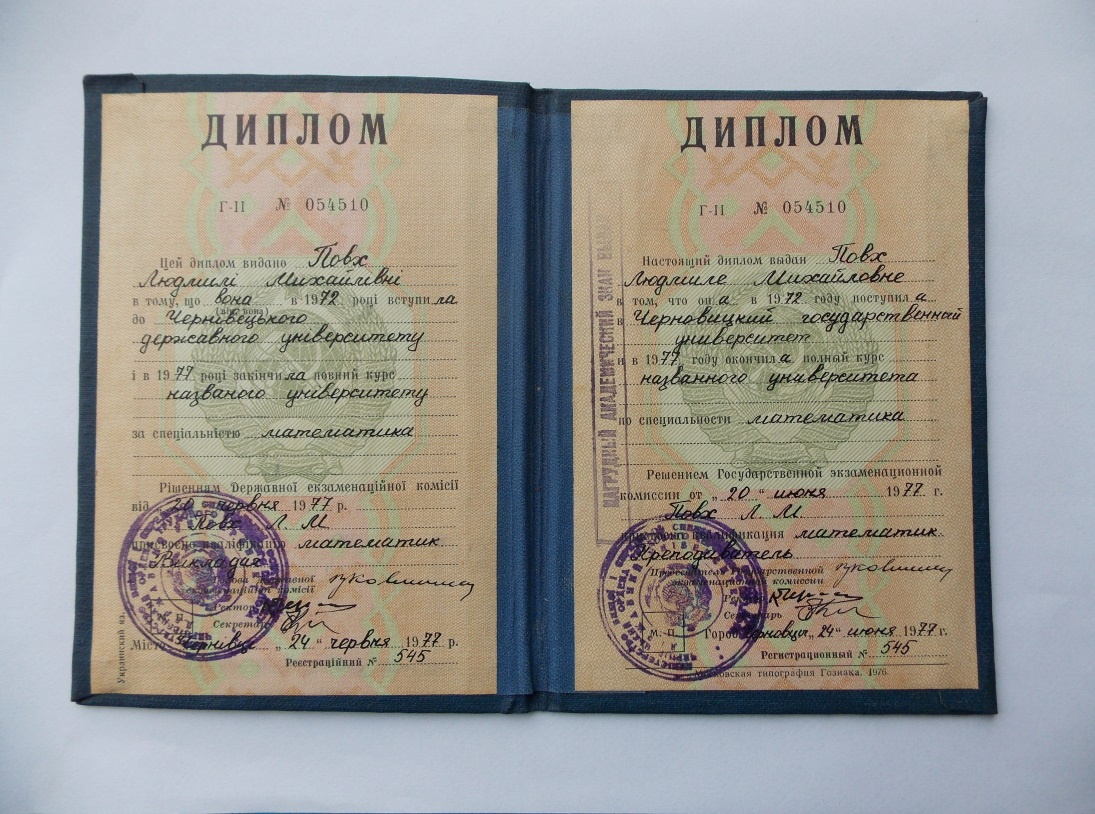 ДИПЛОМ
Г-II № 054510
Цей диплом видано Повх
Людмилі Михайлівні
в тому, що вона в 1972 році вступила
(він, вона)
до Чернівецького
державного університету
і в 1977 році закінчила повний курс
названого університету
за спеціальністю математика
Рішенням Державної екзаменаційної комісії
від „20 червня 1977 р.
Повх Л. М.
присвоєно кваліфікацію математик.
Викладач
Голова Державної
екзаменаційної комісії
Ректор
Секретар
Місто Чернівці „24“ червня 1977 р.
Реєстраційний № 545
Украинский яз.
ДИПЛОМ
Г-II № 054510
Настоящий диплом выдан Повх
Людмиле Михайловне
в том, что она в 1972 году поступила
в Черновицкий государственный
университет
и в 1977 году окончила полный курс
названного университета
по специальности математика
Решением Государственной экзаменационной
комиссии от „20“ июня 1977 г.
Повх Л. М.
присвоена квалификация математик.
Преподаватель
Председатель Государственной
экзаменационной комиссии
Секретарь
М. П.
Город Черновцы, „24“ июня 1977 г.
Регистрационный № 545
Московская типография Гознака. 1976.
НАГРУДНЫЙ АКАДЕМИЧЕСКИЙ ЗНАК ВЫДАН